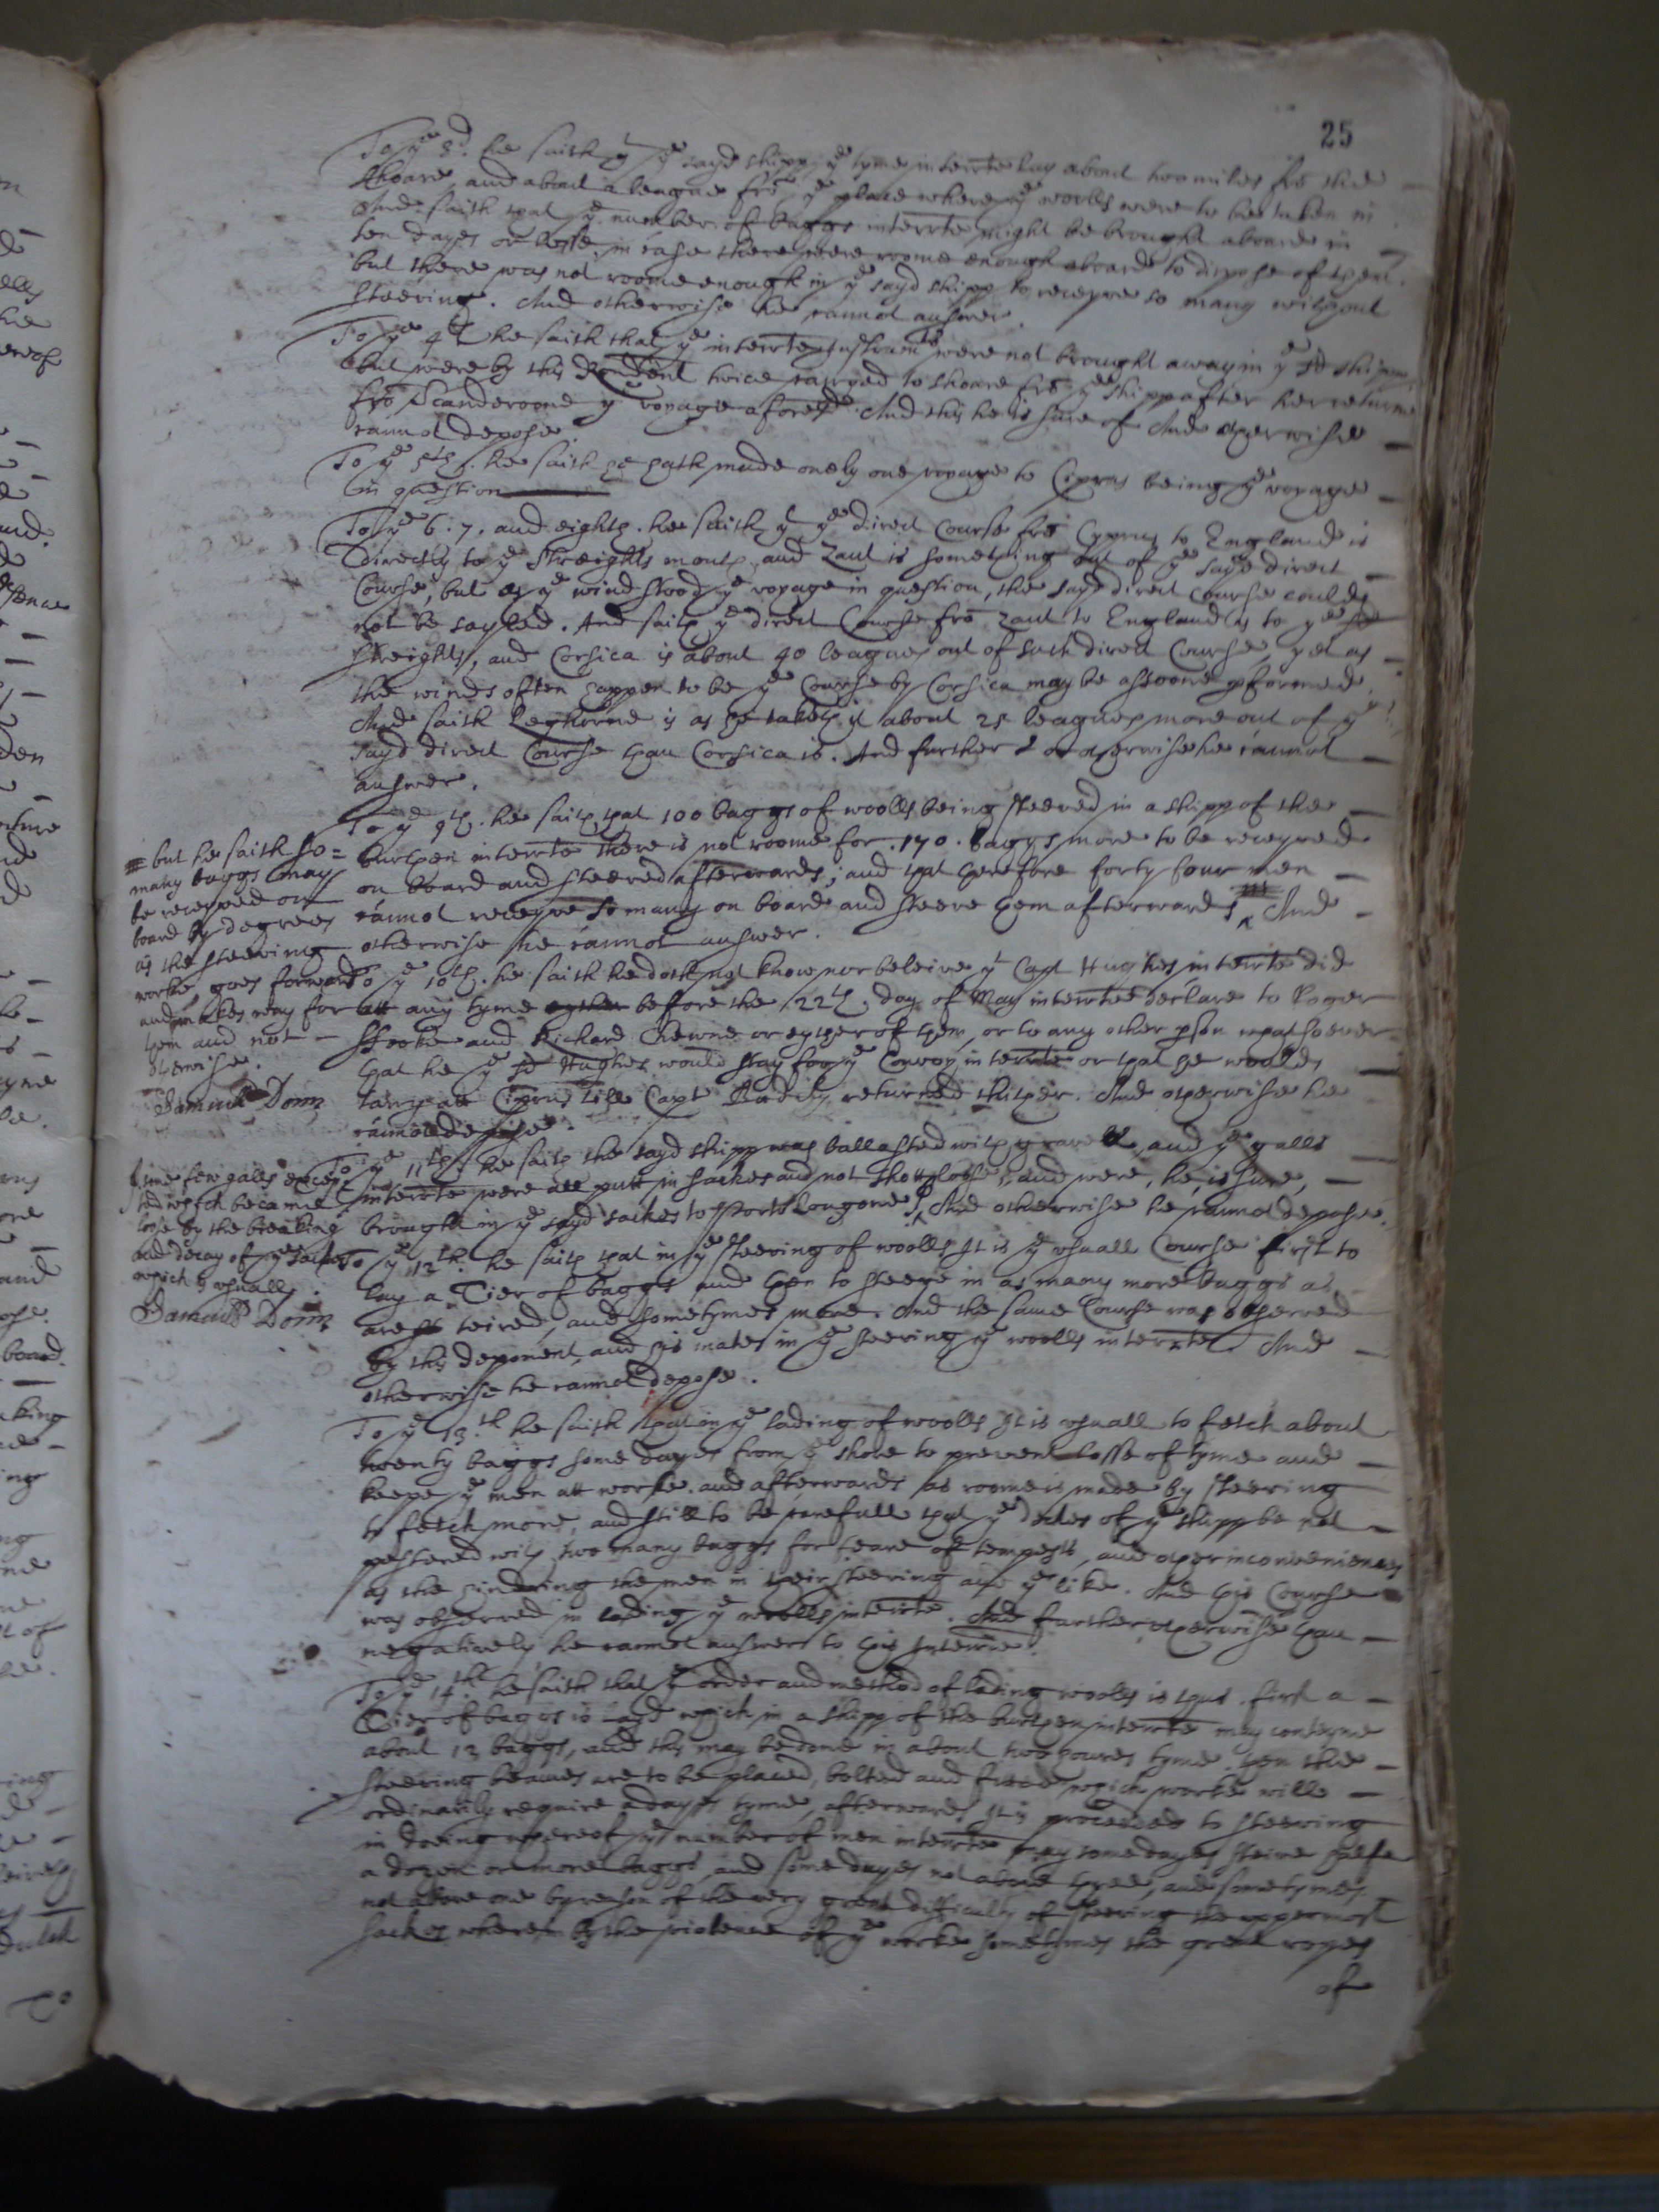 25
To ye 3d. he saith yt ye sayd shipp ye tyme interrte lay about two miles fro the
shoare, and about a league fro ye place where ye woolls were to be taken in
And saith that ye number of baggs interrte might be brought aboard in
ten dayes or lesse, in case there were roome enough aboard to dispose of them
but there was not roome enough in ye sayd shipp to receyve so many without
steeving. And otherwise he cannot answer.
To ye 4th he saith that ye interrte Instrumts were not brought away in ye sd shipp
but were by this Rendent twice carryed to shoare fro ye shipp after her returne
fro Scanderoone ye voyage aforesd. And this he is sure of And otherwise
cannot depose.
To ye 5th. he saith he hath made onely one voyage to Ciprus being ye voyage
in question
To ye 6. 7. and eighth. he saith yt ye direct Course fro Cyprus to England is
directly to ye Streights mouth, and Zant is something out of ye sayd direct
Course, but as ye wind stood ye voyage in question, the sayd direct Course could
not be sayled. And saith ye direct Course fro Zant to England is to ye sd
streights, and Corsica is about 40 leagues out of such direct Course, yet as
the winds often happen to be ye Course by Corsica may be assoone pformed
And saith Leghorne is as he taketh it about 25 leagues more out of ye
sayd direct Course than Corsica is. And further & or otherwise he cannot
answer.
To ye 9th. he saith that 100 baggs of woolls being steeved in a shipp of the
burthen interrte there is not roome for 170. baggs more to be receyved
on board and steeved afterwards; and that therefore forty four men
cannot receyve so many on board and steeve them afterwards, And
otherwise he cannot answer.
but he saith so=
many baggs may
be receyved on
board by degrees
as the steeving
worke goes forward
and makes way for
them and not
otherwise.
Samuell Donn
To ye 10th. he saith he doth not know nor beleive yt Capt Hughes interrte did
att any tyme eyther before the 22th. day of May interrte declare to Roger
ffooke and Richard Chewne or eyther of them, or to any other pson whatsoever
that he ye sd Hughes would stay for ye Convoy interrte or that he would
tarry att Ciprus till Capt Badily returned thither. And otherwise he
cannot depose.
To ye 11th. he saith the sayd shipp was ballasted with gravell, and ye galls
interrte were all putt in sackes and not shott loose, and were, he is sure,
brought in ye sayd sackes to Porto Longone, And otherwise he cannot depose.
some few galls excep=
ted which became
loose by the breaking
and decay of ye sackes
which is usuall.
Samuell Donn
To ye 12th. he saith that in ye steeving of woolls It is ye usuall Course first to
lay a Tier of baggs, and then to steeve in as many more baggs as
are so teired, and sometymes more. And the same Course was observed
by this deponent and his mates in ye steeving ye woolls interrte. And
otherwise he cannot depose.
To ye 13.th he saith that in ye lading of woolls It is usuall to fetch about
twenty baggs some dayes from ye shore to prevent losse of tyme and
keepe ye men att worke. and afterwards as roome is made by steeving
to fetch more, and still to be carefull that ye deckes of ye shipp be not
pestered with two many baggs for feare of tempests, and other inconveniences
as the hindering the men in their steeving and ye like. And this Course
was observed in lading ye woolls interrte. And further otherwise than
negatively he cannot answer to this Interrie.
To ye 14.th he saith that ye order and method of lading woolls is thus. first a
Tier of baggs is layd which in a shipp of the burthen interrte may conteyne
about 13 baggs, and this may be done in about two houres tyme. then the
steeving beames are to be placed, bolted and fitted which worke will
ordinarily require a dayes tyme, afterwards It is proceeded to steeving
in doeing whereof ye number of men interrte may some dayes steeve halfe
a dozen or more baggs, and some dayes not above three, and sometymes
not above one by reason of the very great difficulty of steeving the uppermost
sackes wherein by the violence of ye worke sometymes the great ropes
of